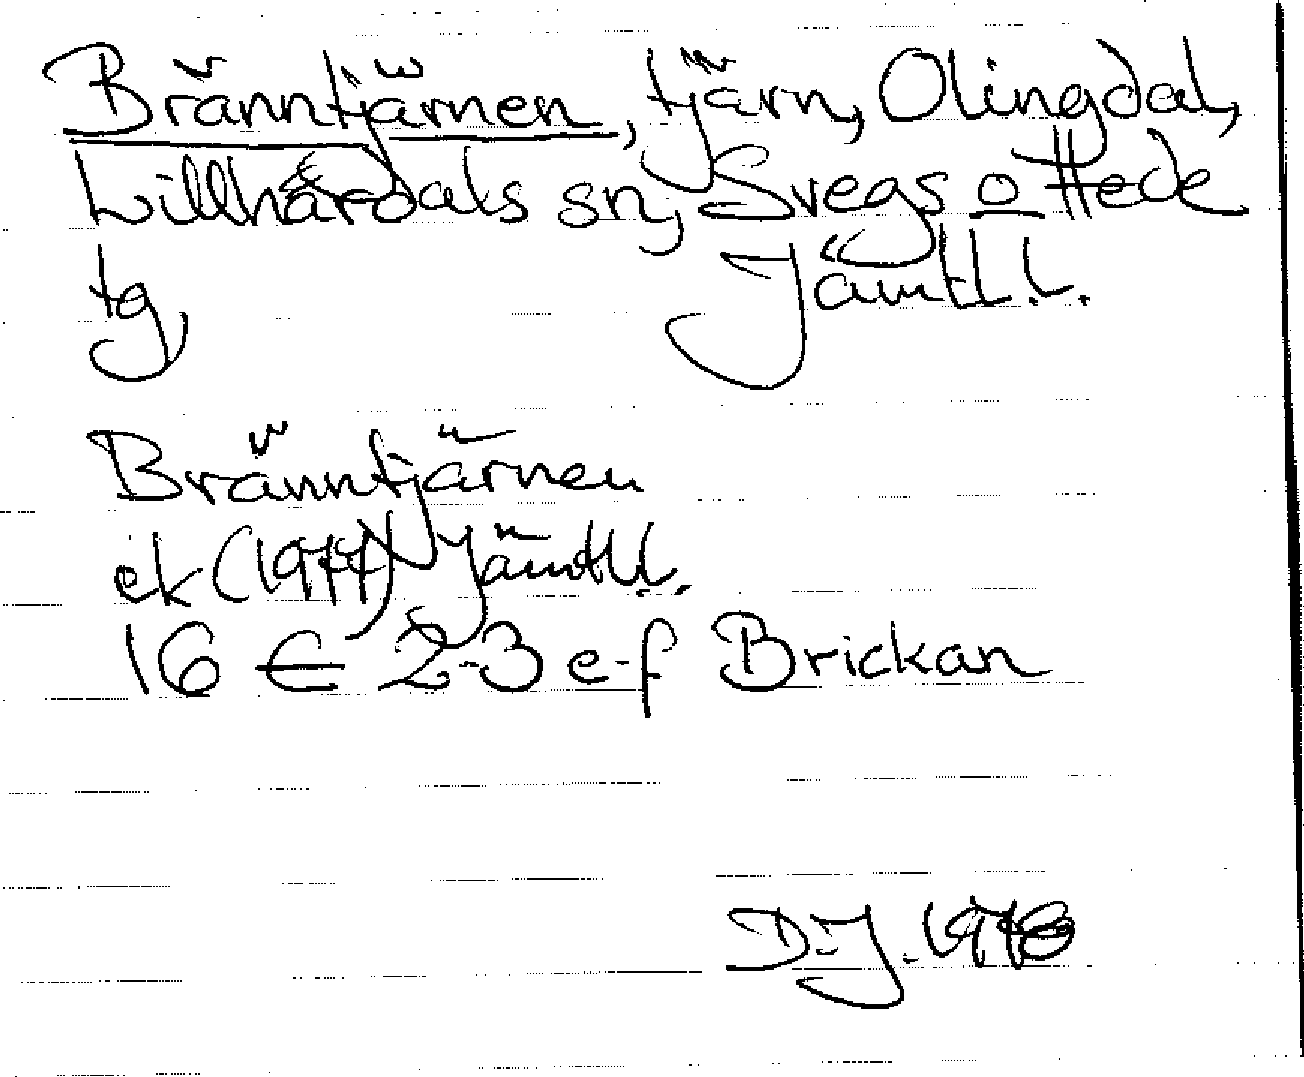 Bränntjärnen, tjärn, Olingdal,
Lillhärdals sn, Svegs o Hede
tg, Jämtl. l.
Bränntjärnen
ek (1977) Jämtl l.
16 E 2-3 e-f Brickan
D.J. 1978